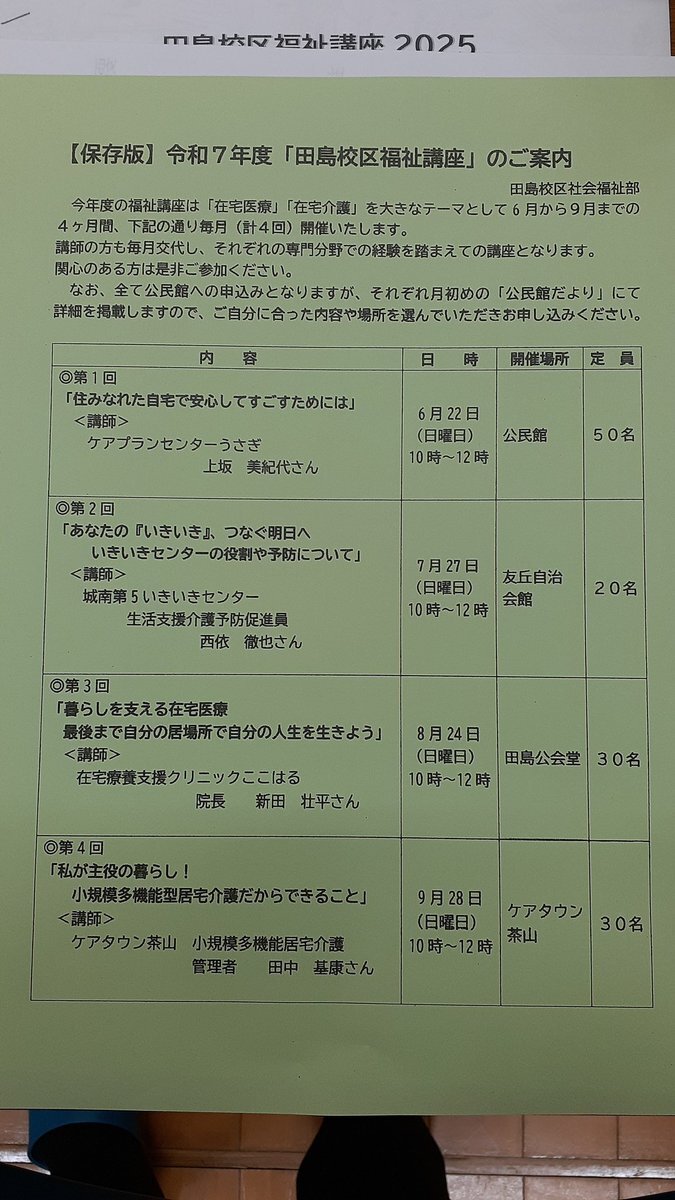 田島校区福祉講座 2025
【保存版】令和７年度「田島校区福祉講座」のご案内
田島校区社会福祉部
今年度の福祉講座は「在宅医療」「在宅介護」を大きなテーマとして６月から９月までの
４ヶ月間、下記の通り毎月（計４回）開催いたします。
講師の方も毎月交代し、それぞれの専門分野での経験を踏まえての講座となります。
関心のある方は是非ご参加ください。
なお、全て公民館への申込みとなりますが、それぞれ月初めの「公民館だより」にて
詳細を掲載しますので、ご自分に合った内容や場所を選んでいただきお申し込みください。
内　容　日　時　開催場所　定　員
◎第１回
「住みなれた自宅で安心してすごすためには」
＜講師＞
ケアプランセンターうさぎ
上坂　美紀代さん
６月22日
（日曜日）
10時～12時
公民館
５０名
◎第２回
「あなたの『いきいき』、つなぐ明日へ
いきいきセンターの役割や予防について」
＜講師＞
城南第５いきいきセンター
生活支援介護予防促進員
西依　徹也さん
７月27日
（日曜日）
10時～12時
友丘自治
会館
２０名
◎第３回
「暮らしを支える在宅医療
最後まで自分の居場所で自分の人生を生きよう」
＜講師＞
在宅療養支援クリニックここはる
院長　新田　壮平さん
８月24日
（日曜日）
10時～12時
田島公会堂
３０名
◎第４回
「私が主役の暮らし！
小規模多機能型居宅介護だからできること」
＜講師＞
ケアタウン茶山　小規模多機能居宅介護
管理者　田中　基康さん
９月28日
（日曜日）
10時～12時
ケアタウン
茶山
３０名